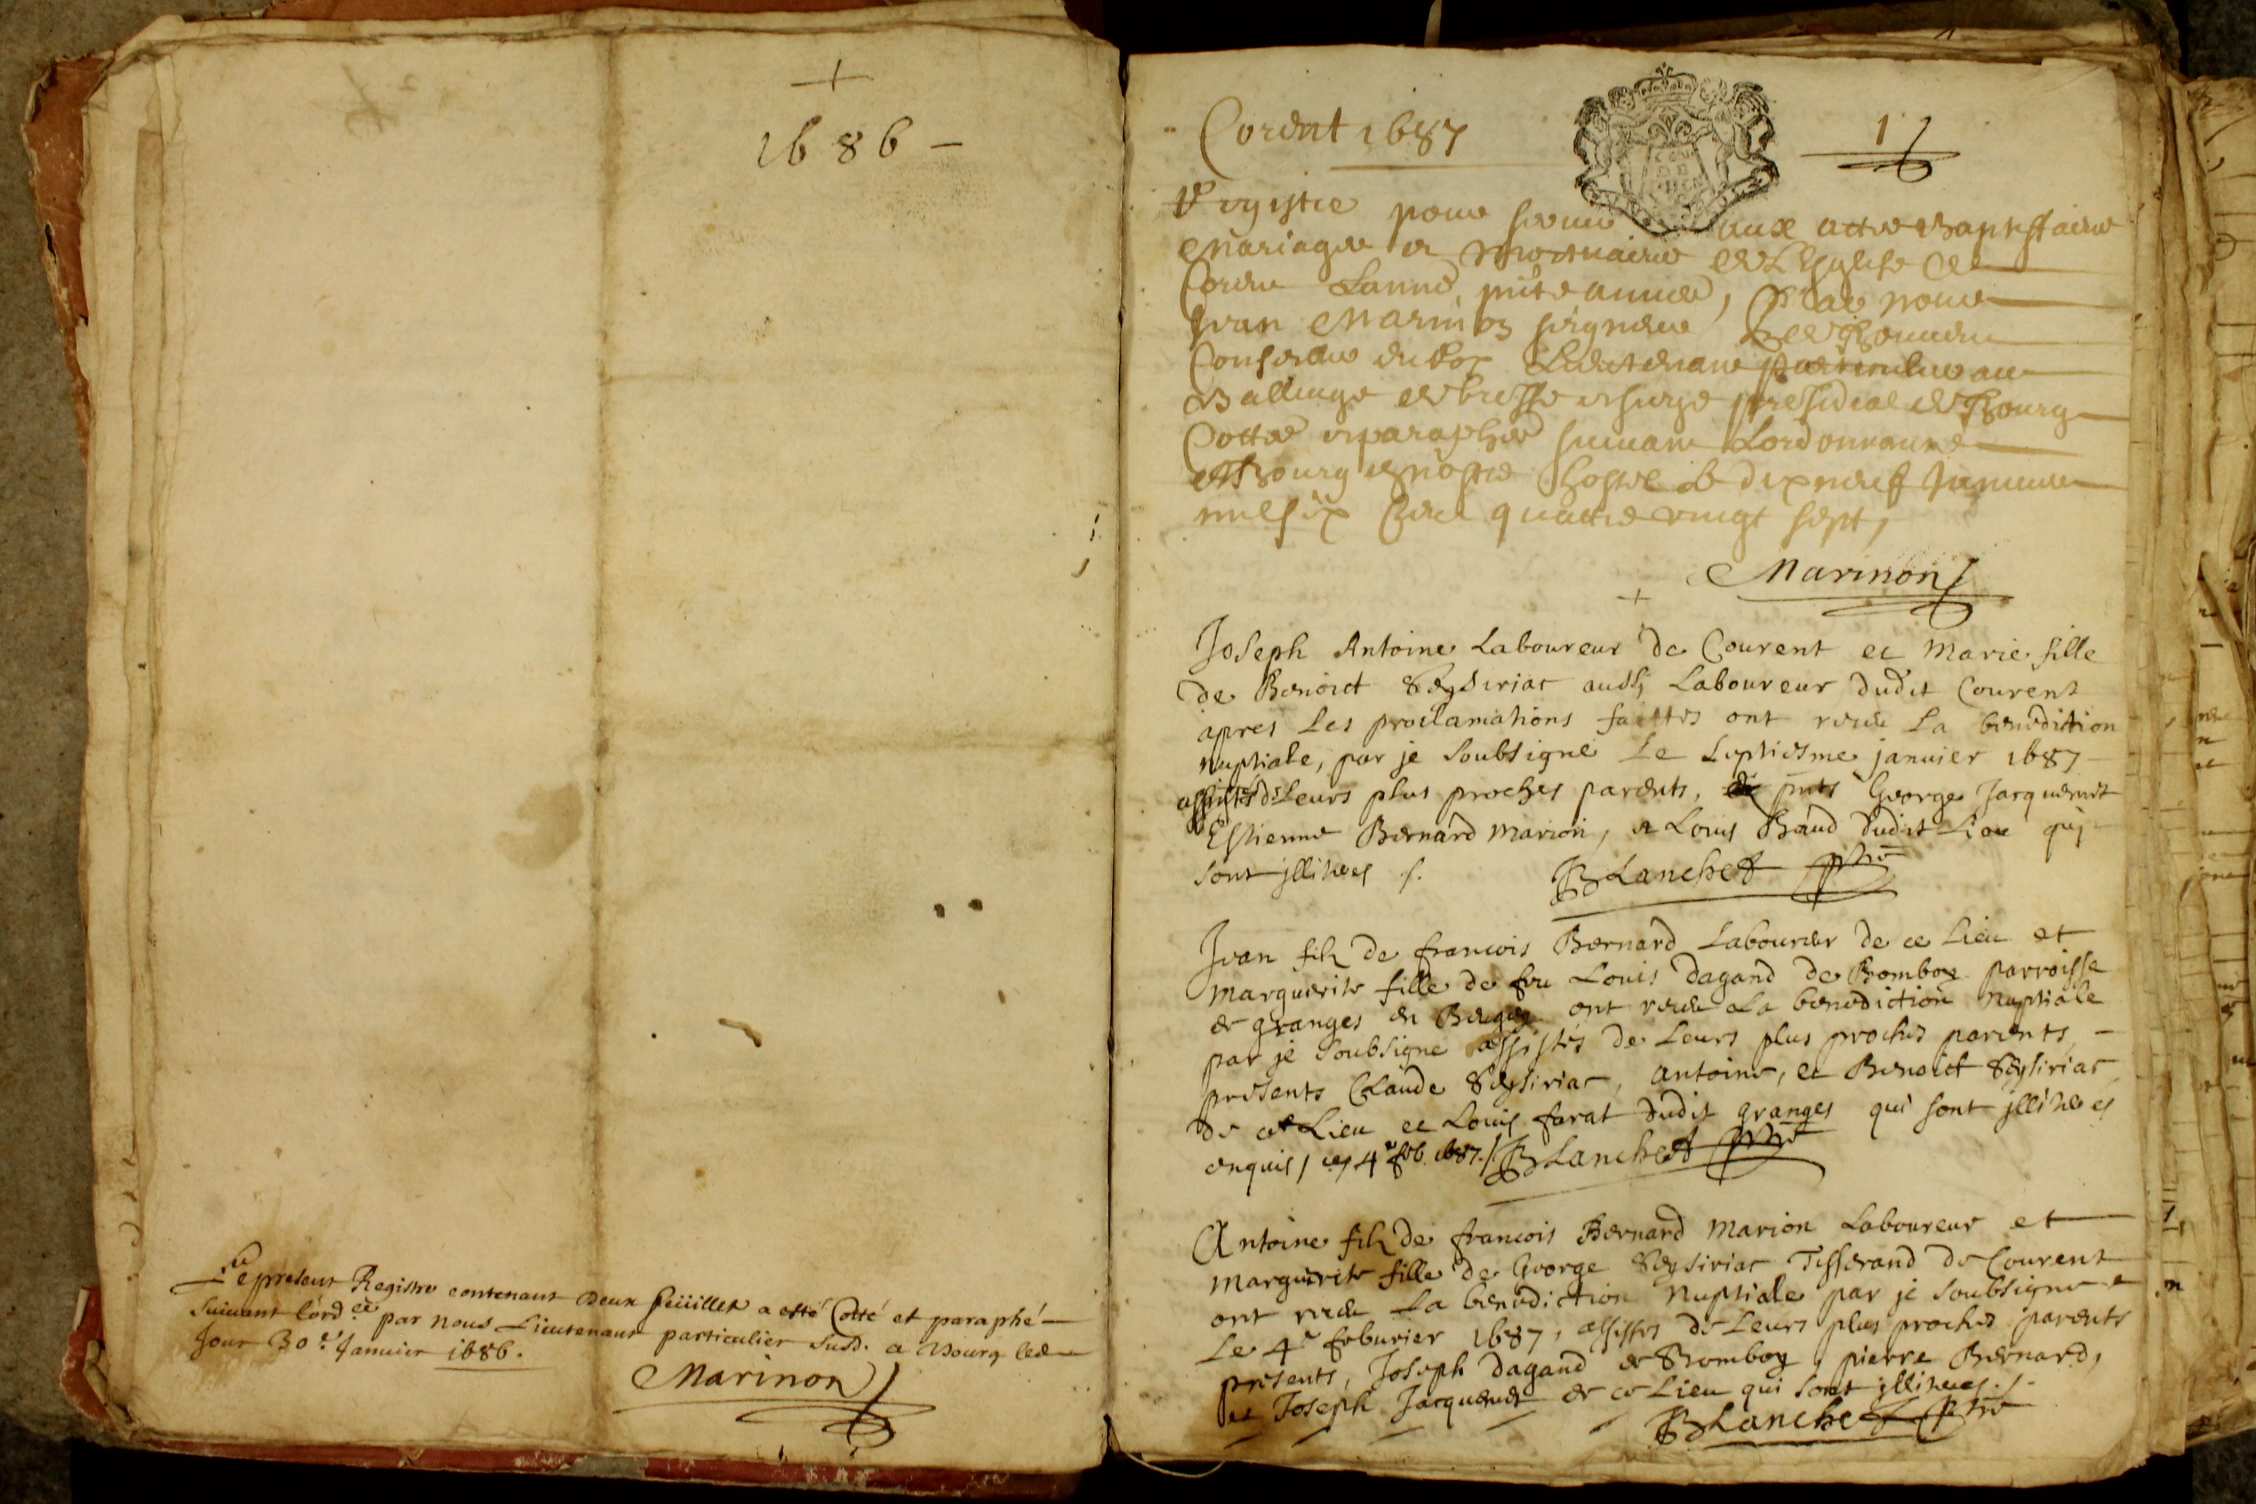 1686
Le present Registre contenant Deux feüillet a esté Cotté et paraphé
suivant lord.ce par nous Lieutenant particulier susd. a Bourg led
Jour 30.e Janvier 1686.
Marinon
Corent 1687
1
Registre pour servir aux actes Baptistaire
Mariages et Mortuaires de Lesglise de
Corent Lanné pnte année, Par nous
Jean Marinon seigneur de
Conseiller du Roy Lieutenant particulier au
Balliage de bresse et siege presidial de Bourg
Cottée et paraphée suivant Lordonnance
A Bourg en nostre hostel le dix neuf Janvier
mil six Cent quattre vingt sept,
Marinon
Joseph Antoine Laboureur de Courent et Marie fille
de Benoict Seysiriat aussi Laboureur dudit Courent
apres Les proclamations faittes ont receu la benediction
nuptiale, par je soubsigné Le septiesme janvier 1687
assistés de Leurs plus proches parents, pnts George Jacquemet
Estienne Bernard Marion, et Louis Baud dudit Lieu qui
sont jlliteres /.
BLanchet ptre
Jean filz de francois Bernard Laboureur de ce Lieu et
Marguerite fille de feu Louis Dagand de Bomboy parroisse
de granges en Bugey ont receu La benediction Nuptiale
par je soubsigne assistés de Leurs plus proches parents
presents Claude Seysiriat, Antoine, et Benoict Seysiriat
de ce Lieu et Louis farat dudit granges qui sont jlliteres
enquis, ce 4e feb. 1687./. BLanchet ptre
Antoine filz de francois Bernard Marion Laboureur et
Marguerite fille de George Seysiriat Tisserand de Courent
ont receu La benediction Nuptiale par je soubsigne
Le 4e feburier 1687, assistes de Leurs plus proches parents
presents, Joseph Dagand de Bomboy, pierre Bernard,
et Joseph Jacquemet de ce Lieu qui sont jlliteres./.
BLanchet ptre